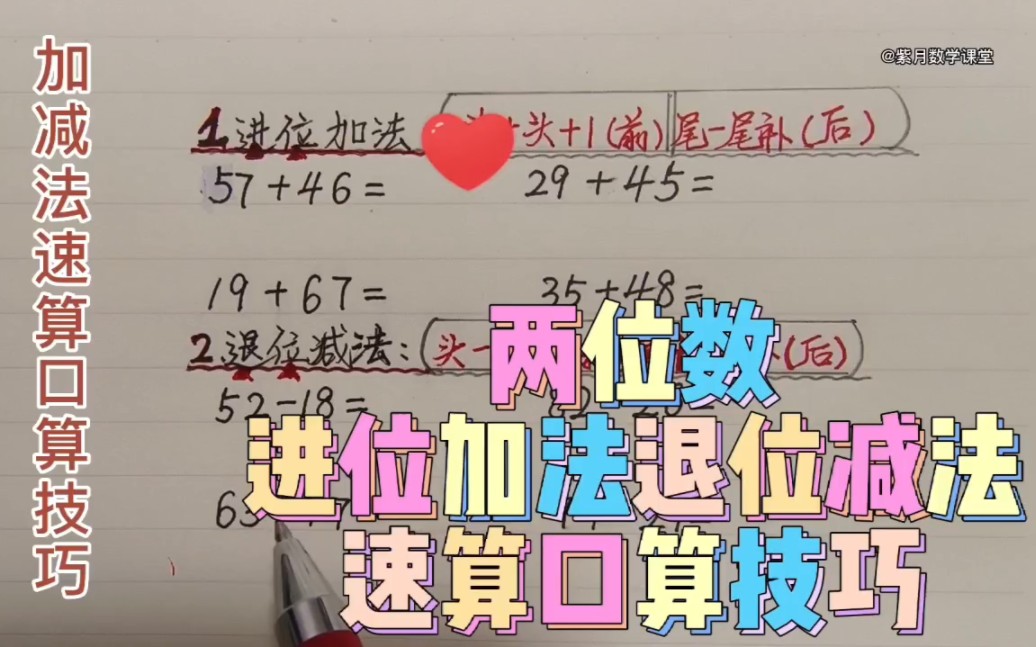 加减法速算口算技巧
@紫月数学课堂
1.进位加法 头+1(前) 尾-尾补(后)
57+46= 29+45=
19+67= 35+48=
2.退位减法:(头- (后)
52-18=
两位数
进位加法退位减法
速算口算技巧